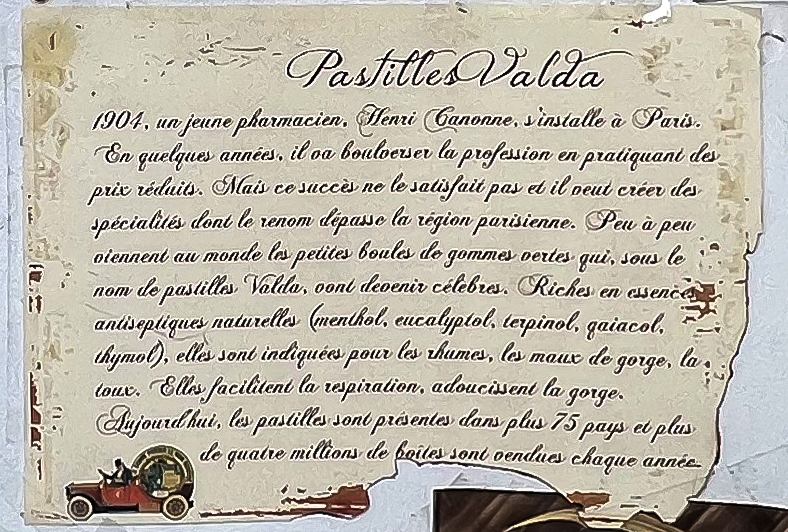 Pastilles Valda
1904, un jeune pharmacien, Henri Canonne, s'installe à Paris.
En quelques années, il va boulverser la profession en pratiquant des
prix réduits. Mais ce succès ne le satisfait pas et il veut créer des
spécialités dont le renom dépasse la région parisienne. Peu à peu
viennent au monde les petites boules de gommes vertes qui, sous le
nom de pastilles Valda, vont devenir célèbres. Riches en essences
antiseptiques naturelles (menthol, eucalyptol, terpinol, gaiacol,
thymol), elles sont indiquées pour les rhumes, les maux de gorge, la
toux. Elles facilitent la respiration, adoucissent la gorge.
Aujourd'hui, les pastilles sont présentes dans plus 75 pays et plus
de quatre millions de boîtes sont vendues chaque année.